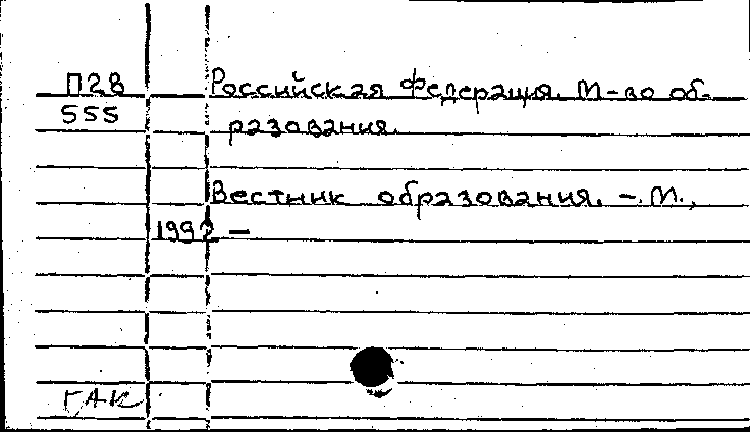 П28 Российская Федерация. М-во об-
555 разования.
Вестник образования. – М.,
1992 –
ГАК